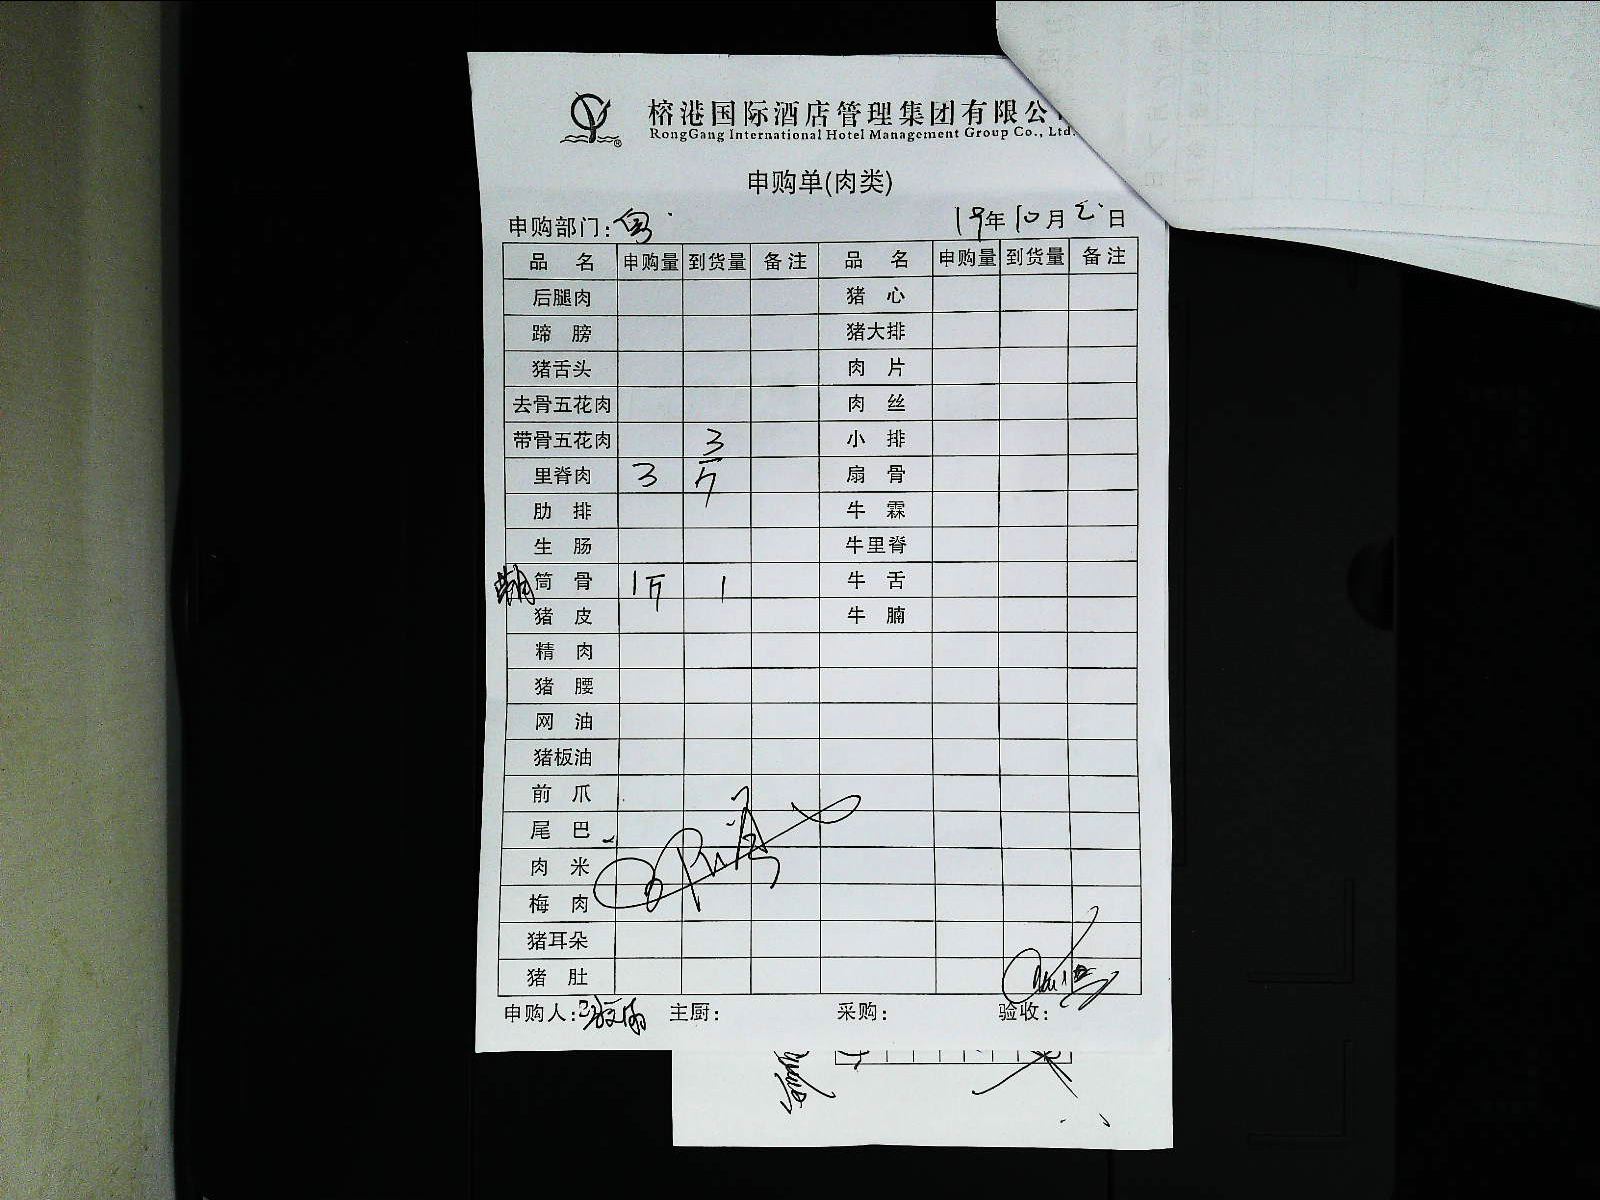 榕港国际酒店管理集团有限公
RongGang International Hotel Management Group Co., Ltd.
申购单(肉类)
申购部门: 粤 19年10月 日
品 名 申购量 到货量 备注 品 名 申购量 到货量 备注
后腿肉 猪 心
蹄 膀 猪大排
猪舌头 肉 片
去骨五花肉 肉 丝
带骨五花肉 3 小 排
里脊肉 3 斤 扇 骨
肋 排 牛 霖
生 肠 牛里脊
筒 骨 1斤 1 牛 舌
猪 皮 牛 腩
精 肉
猪 腰
网 油
猪板油
前 爪
尾 巴
肉 米
梅 肉
猪耳朵
猪 肚
申购人: 主厨: 采购: 验收: